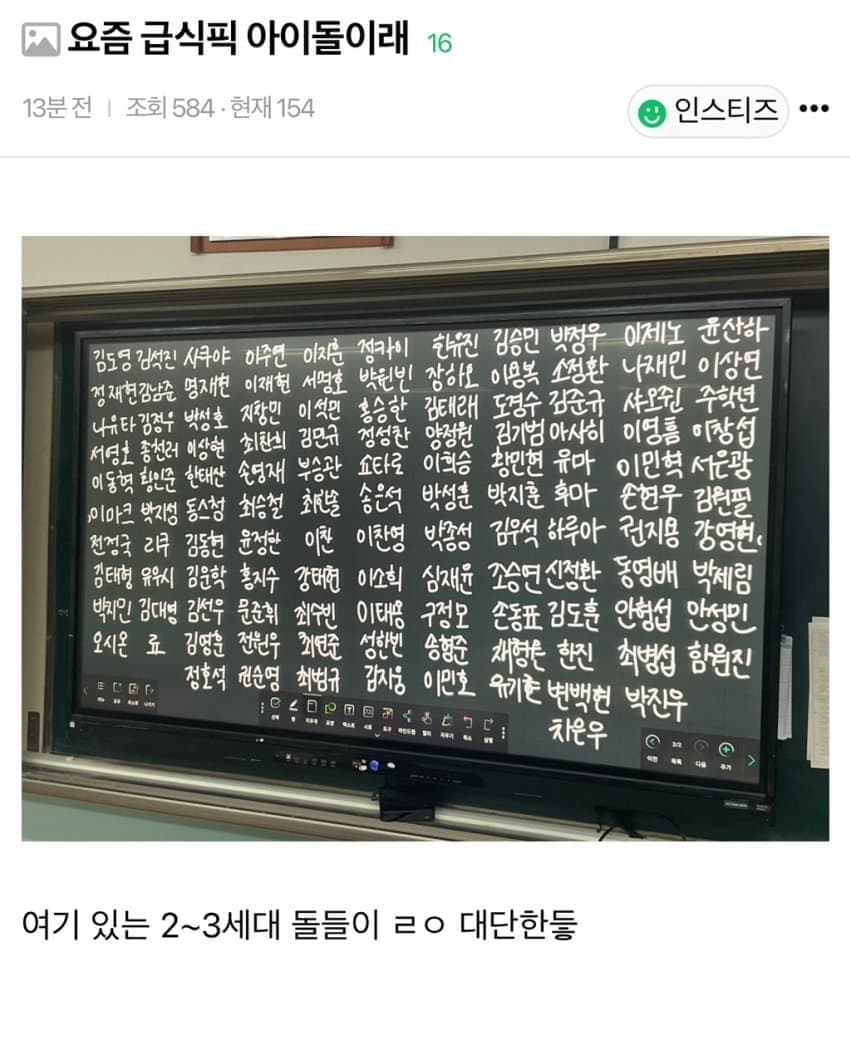 요즘 급식픽 아이돌이래 16
13분 전 | 조회 584 · 현재 154
인스티즈
김도영 김석진 사쿠야 이주연 이지훈 정카이 한유진 김승민 박정우 이제노 윤산하
정재현 김남준 명재현 이재현 서명호 박원빈 장하오 이용복 소정환 나재민 이상연
나유타 김정우 박성호 지창민 이석민 홍승한 김태래 도경수 김준규 샤오쥔 주학년
서영호 종천러 이상현 최찬희 김민규 정성찬 양정원 김기범 아사히 이영흠 이창섭
이동혁 황인준 한태산 손영재 부승관 쇼타로 이희승 황민현 유마 이민혁 서은광
이마크 박지성 동스청 최승철 최한솔 송은석 박성훈 박지훈 후마 손현우 김원필
전정국 리쿠 김동현 윤정한 이찬 이찬영 박종성 김우석 하루아 권지용 강영현
김태형 유우시 김운학 홍지수 강태현 이소희 심재윤 조승연 신정환 동영배 박제림
박지민 김대영 김선우 문준휘 최수빈 이태용 구정모 손동표 김도훈 안형섭 안성민
오시온 료 김영훈 전원우 최연준 성한빈 송형준 채형원 한진 최병섭 함원진
정호석 권순영 최범규 김지웅 이민호 유기현 변백현 박진우
차은우
이전 2/2 목록 다음 추가
여기 있는 2~3세대 돌들이 ㄹㅇ 대단한듷